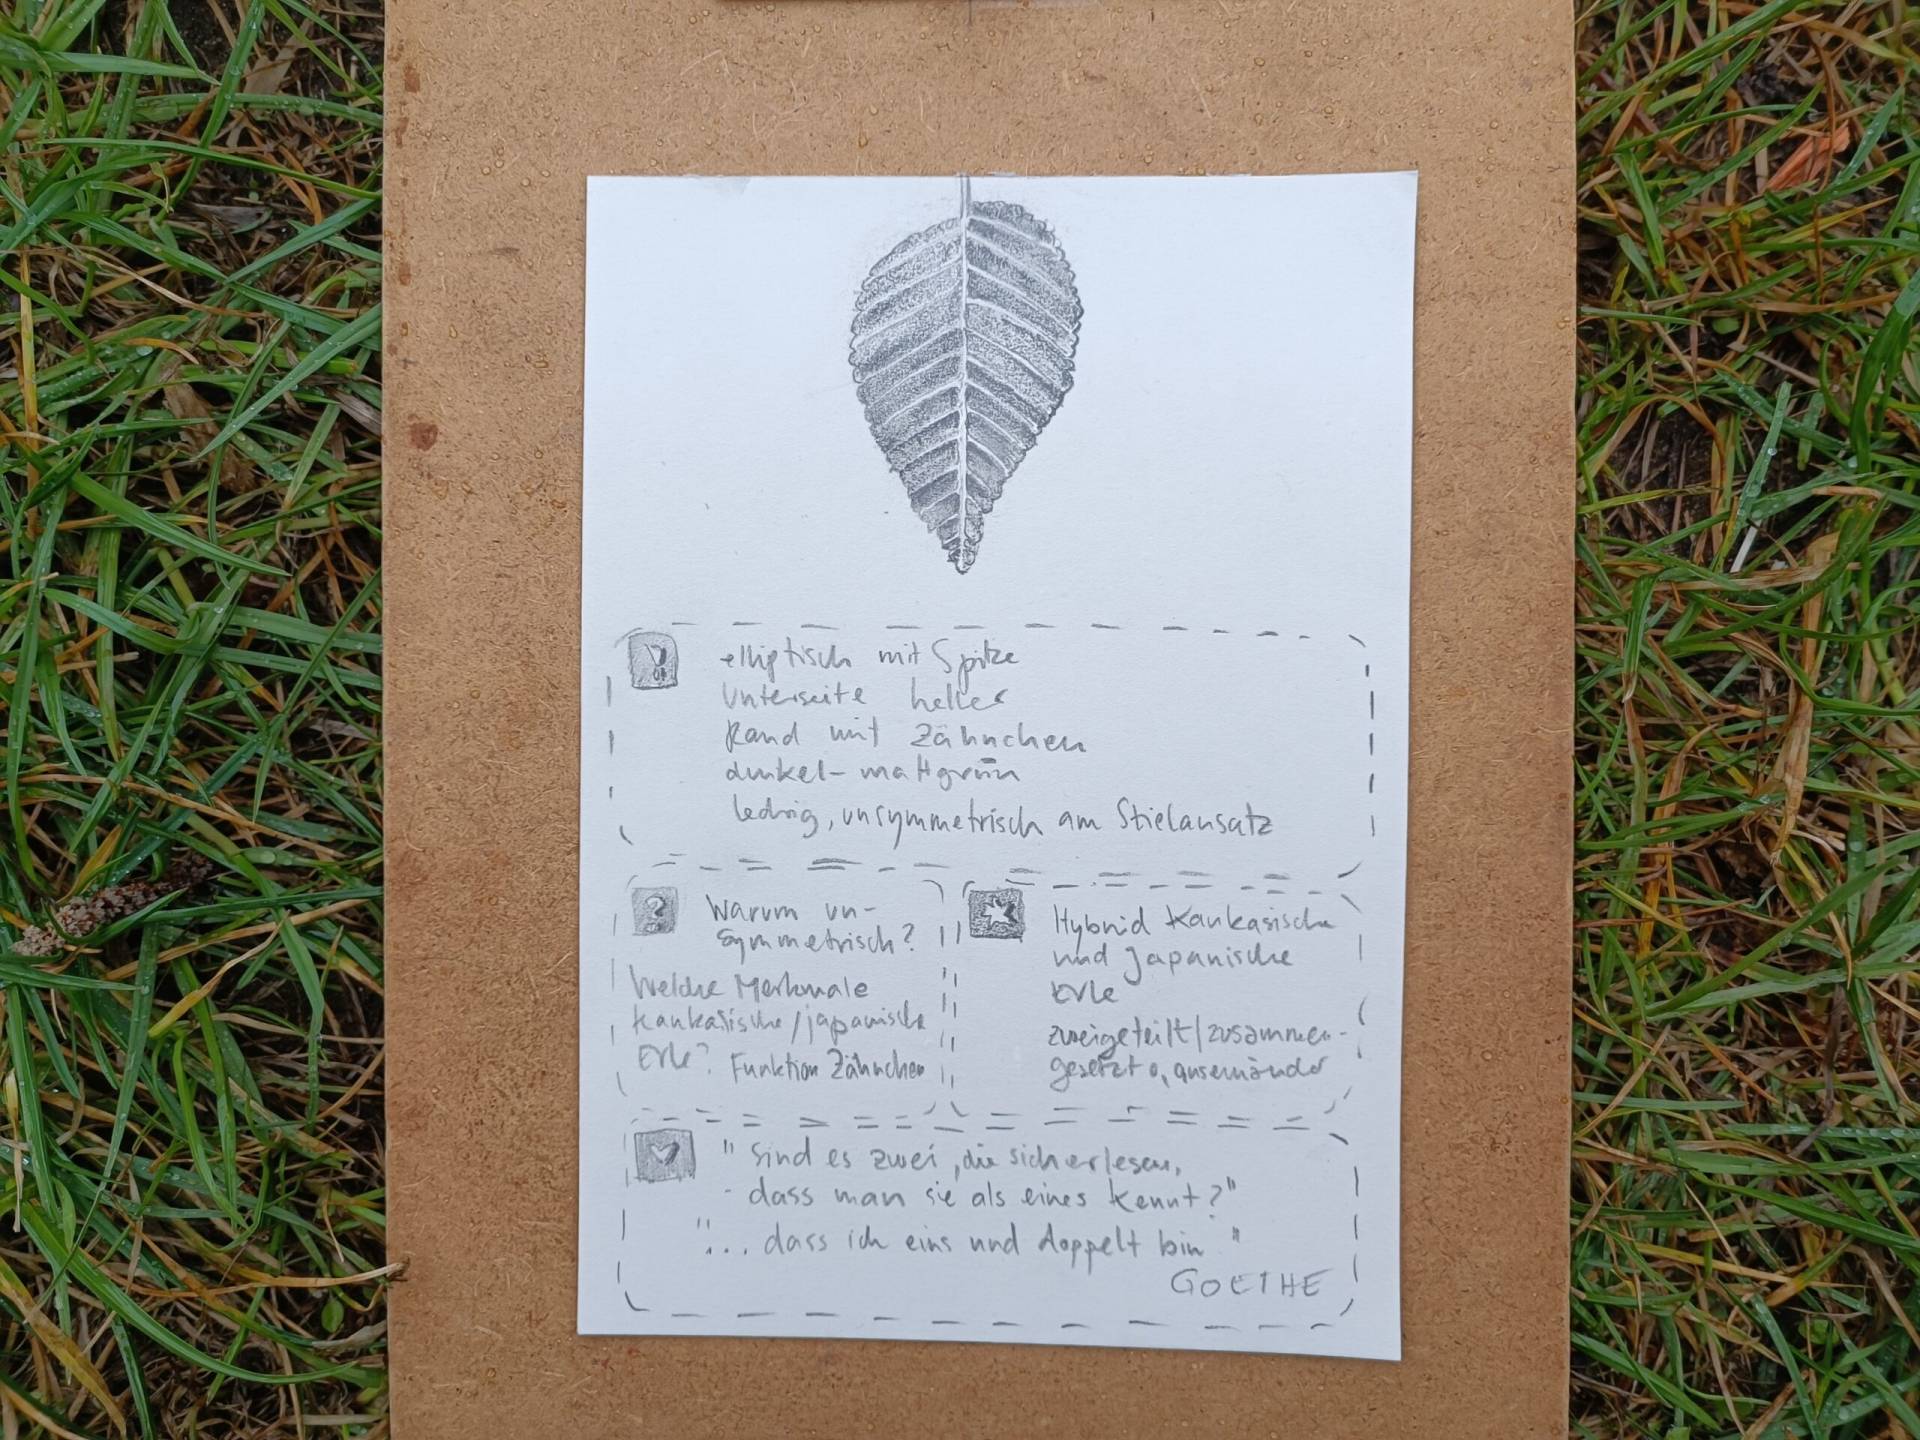 !
elliptisch mit Spitze
Unterseite heller
Rand mit Zähnchen
dunkel-mattgrün
ledrig, unsymmetrisch am Stielansatz
?
Warum un-
symmetrisch?
Welche Merkmale
kaukasische/japanische
Erle? Funktion Zähnchen
Hybrid Kaukasische
und Japanische
Erle
zweigeteilt/zusammen-
gesetzt o. auseinander
" Sind es zwei, die sich erlesen,
dass man sie als eines kennt?"
"... dass ich eins und doppelt bin "
GOETHE